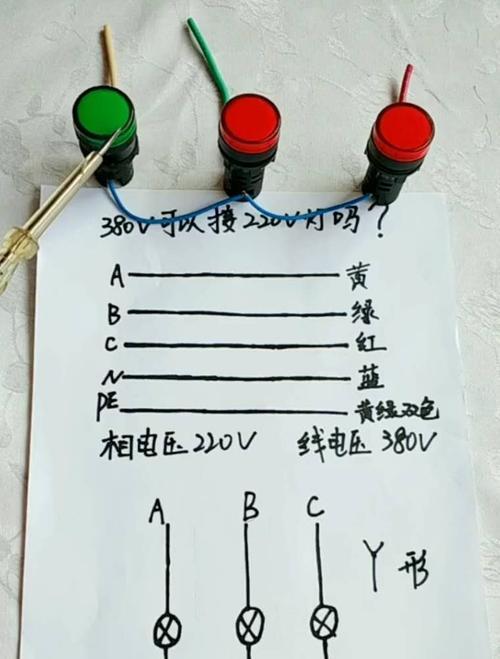 380V可以接220V灯吗?
A 黄
B 绿
C 红
N 蓝
PE 黄绿双色
相电压220V 线电压380V
A B C
Y形